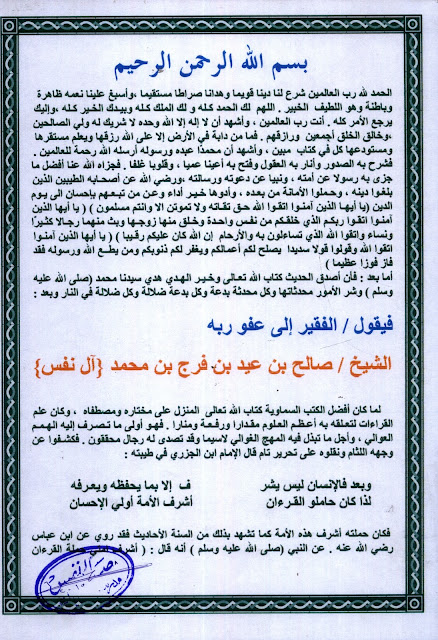 بسم الله الرحمن الرحيم
الحمد لله رب العالمين شرع لنا دينا قويما وهدانا صراطا مستقيما ،وأسبغ علينا نعمه ظاهرة
وباطنة وهو اللطيف الخبير . اللهم لك الحمد كله و لك الملك كله وبيدك الخير كله ،وإليك
يرجع الأمر كله . أنت رب العالمين ، وأشهد أن لا إله إلا الله وحده لا شريك له ولي الصالحين
،وخالق الخلق أجمعين ورازقهم . فما من دابة في الأرض إلا على الله رزقها ويعلم مستقرها
ومستودعها كل في كتاب مبين ، وأشهد أن محمدًا عبده ورسوله أرسله الله رحمة للعالمين .
فشرح به الصدور وأنار به العقول وفتح به أعينا عميا ، وقلوبا غلفا . فجزاه الله عنا أفضل ما
جزى به رسولا عن أمته ، ونبيا عن دعوته ورسالته ،ورضي الله عن أصحابه الطيبين الذين
بلغوا دينه ، وحملوا الأمانة من بعده ، وأدوها خير أداء وعن من تبعهم بإحسان الى يوم
الدين (يا أيها الذين آمنوا اتقوا الله حق تقاته ولا تموتن الا وانتم مسلمون ) ( يا أيها الذين
آمنوا اتقوا ربكم الذي خلقكم من نفس واحدة وخلق منها زوجها وبث منهما رجالا كثيرًا
ونساء واتقوا الله الذي تساءلون به والأرحام إن الله كان عليكم رقيبا ) ( يا أيها الذين آمنوا
اتقوا الله وقولوا قولا سديدا يصلح لكم أعمالكم ويغفر لكم ذنوبكم ومن يطع الله ورسوله فقد
فاز فوزا عظيما )
أما بعد : فأن أصدق الحديث كتاب الله تعالى وخير الهدي هدي سيدنا محمد (صلى الله عليه
وسلم ) وشر الأمور محدثاتها وكل محدثة بدعة وكل بدعة ضلالة وكل ضلالة في النار وبعد :
فيقول / الفقير إلى عفو ربه
الشيخ / صالح بن عيد بن فرج بن محمد {آل نفس}
لما كان أفضل الكتب السماوية كتاب الله تعالى المنزل على مختاره ومصطفاه ، وكان علم
القراءات لتعلقه به أعظم العلوم مقدارا ورفعة ومنارا . فهو أولى ما تصرف إليه الهمم
العوالي ، وأجل ما تبذل فيه المهج الغوالي لاسيما وقد تصدى له رجال محققون . فكشفوا عن
وجهه اللثام ونقلوه على تحرير تام قال الإمام ابن الجزري في طيبته :
وبعد فالإنسان ليس يشر ف إلا بما يحفظه ويعرفه
لذا كان حاملو القرءان أشرف الأمة أولي الإحسان
فكان حملته أشرف هذه الأمة كما تشهد بذلك من السنة الأحاديث فقد روي عن ابن عباس
رضي الله عنه . عن النبي (صلى الله عليه وسلم ) أنه قال : ( أشرف أمتي حملة القرءان